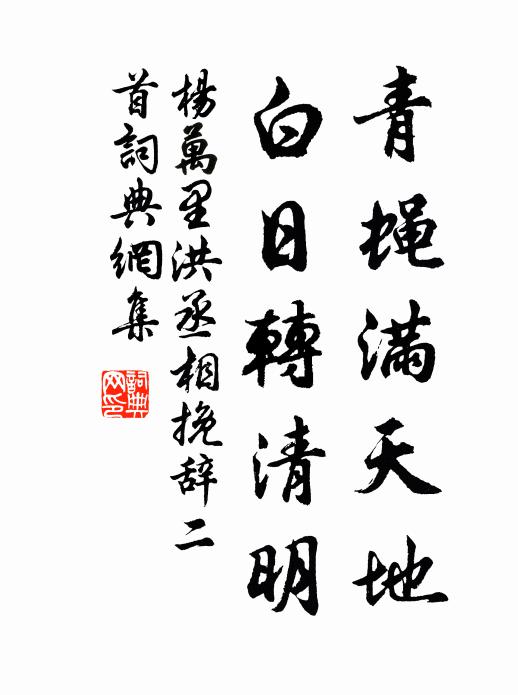 青蝇满天地
白日轉清明
楊萬里洪丞相挽辞二
首詞典網集
詞典网印